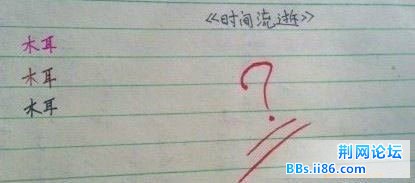 《时间流逝》
木耳
木耳
木耳
?
荆网论坛
BBs.ii86.com